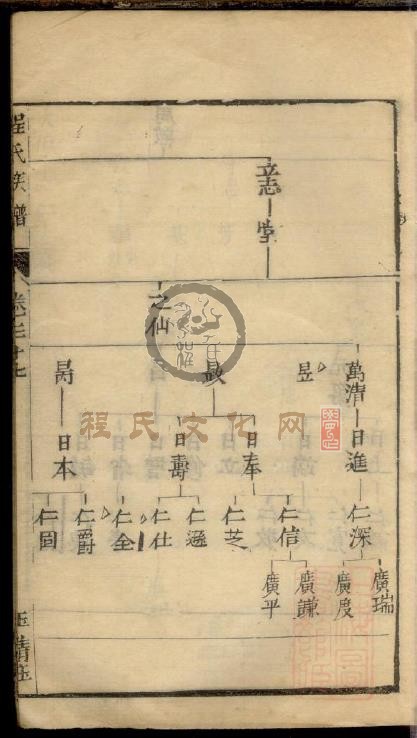 程氏族譜
卷之十七
立志
之仙
萬清 日進 仁深 廣瑞
廣度
昱
啟 日奉 仁信 廣謙
廣平
仁芝
日壽 仁遜
仁仕
仁全
昺 日本 仁爵
仁圖
程氏文化网